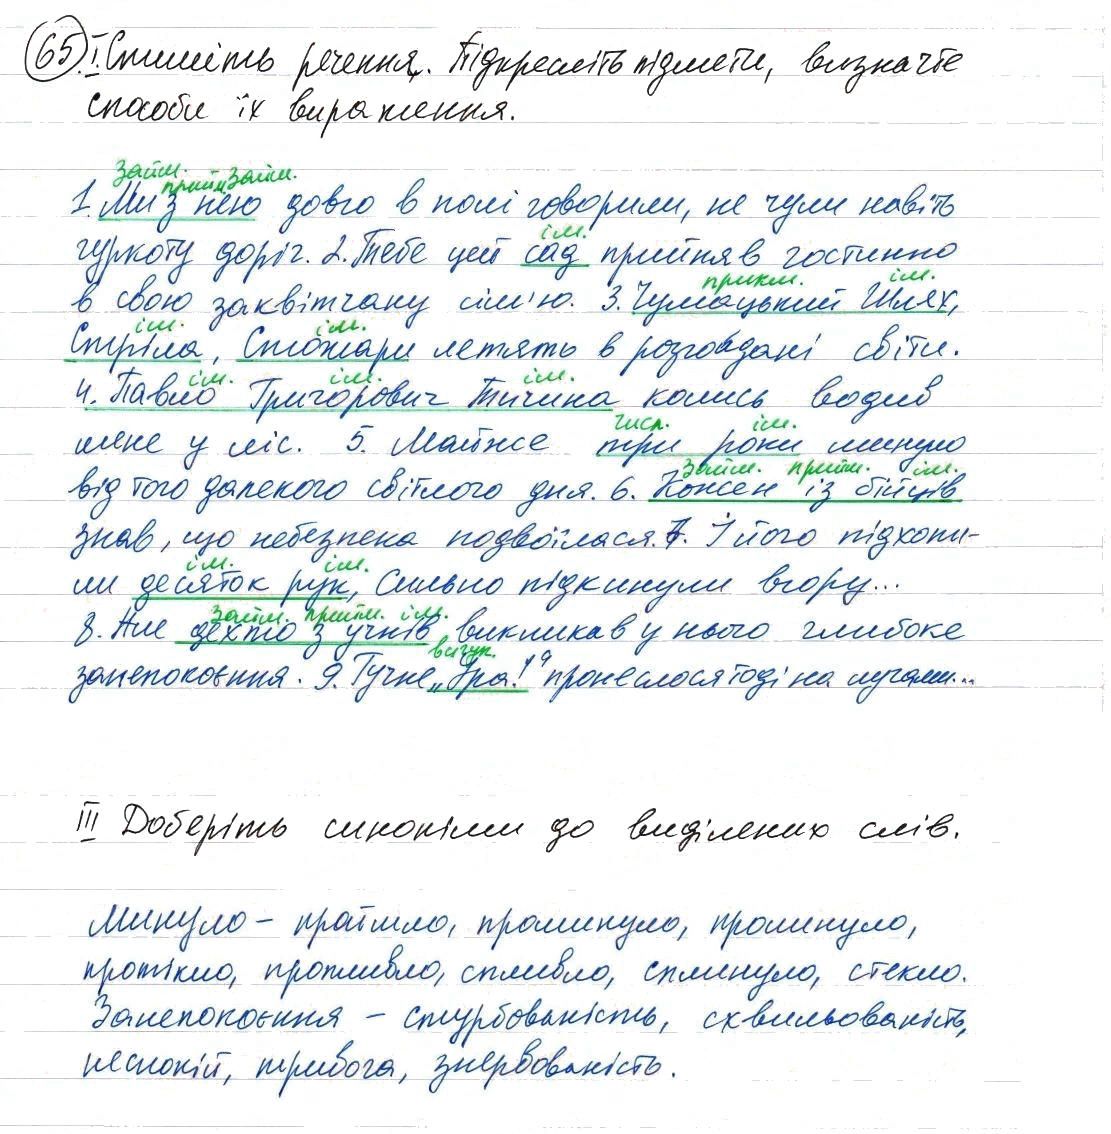 65. I Спишіть речення. Підкресліть підмети, визначте
способи їх вираження.
займ. прийм. займ.
1. Ми з нею довго в полі говорили, не чули навіть
ім.
гуркоту доріг. 2. Тебе цей сад прийняв гостинно
прикм. ім.
в свою заквітчану сім'ю. 3. Чумацький Шлях,
ім. ім.
Стріла, Стожари летять в розгойдані світи.
ім. ім. ім.
4. Павло Григорович Тичина колись водив
числ. ім.
мене у ліс. 5. Майже три роки минуло
займ. прийм. ім.
від того далекого світлого дня. 6. Кожен із бійців
знав, що небезпека подвоїлася. 7. І його підхопи-
ім. ім.
ли десяток рук, сильно підкинули вгору...
займ. прийм. ім.
8. Але дехто з учнів викликав у нього глибоке
вигук.
занепокоєння. 9. Гучне „Ура!" пронеслося тоді над лугами...
III Доберіть синоніми до виділених слів.
Минуло – пройшло, проминуло, проминуло,
протікло, пропливло, спливло, сплинуло, стекло.
Занепокоєння – стурбованість, схвильованість,
неспокій, тривога, знервованість.